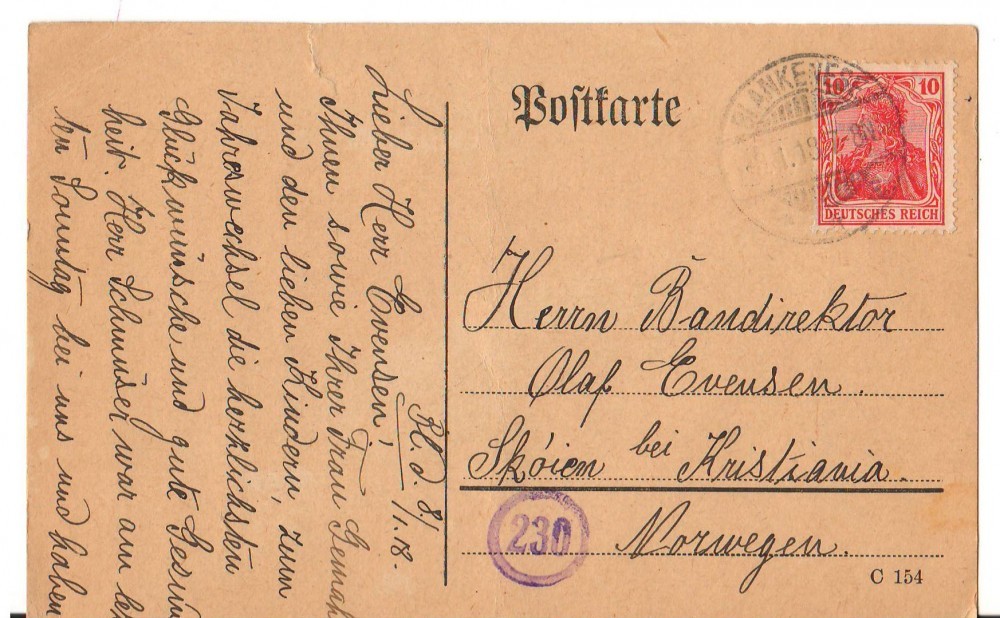 Postkarte
BLANKENESE
10 10
DEUTSCHES REICH
Herrn Baudirektor
Olaf Evensen.
Skóien bei Kristiania.
Norwegen.
230
C 154
Bl. d. 8./1. 18.
Lieber Herr Evensen!
Ihnen sowie Ihrer Frau Gemah
und den lieben Kindern, zum
Jahreswechsel die herzlichsten
Glückwünsche und gute Gesun
heit. Herr Schmüser war am le
ten Sonntag bei uns und haben